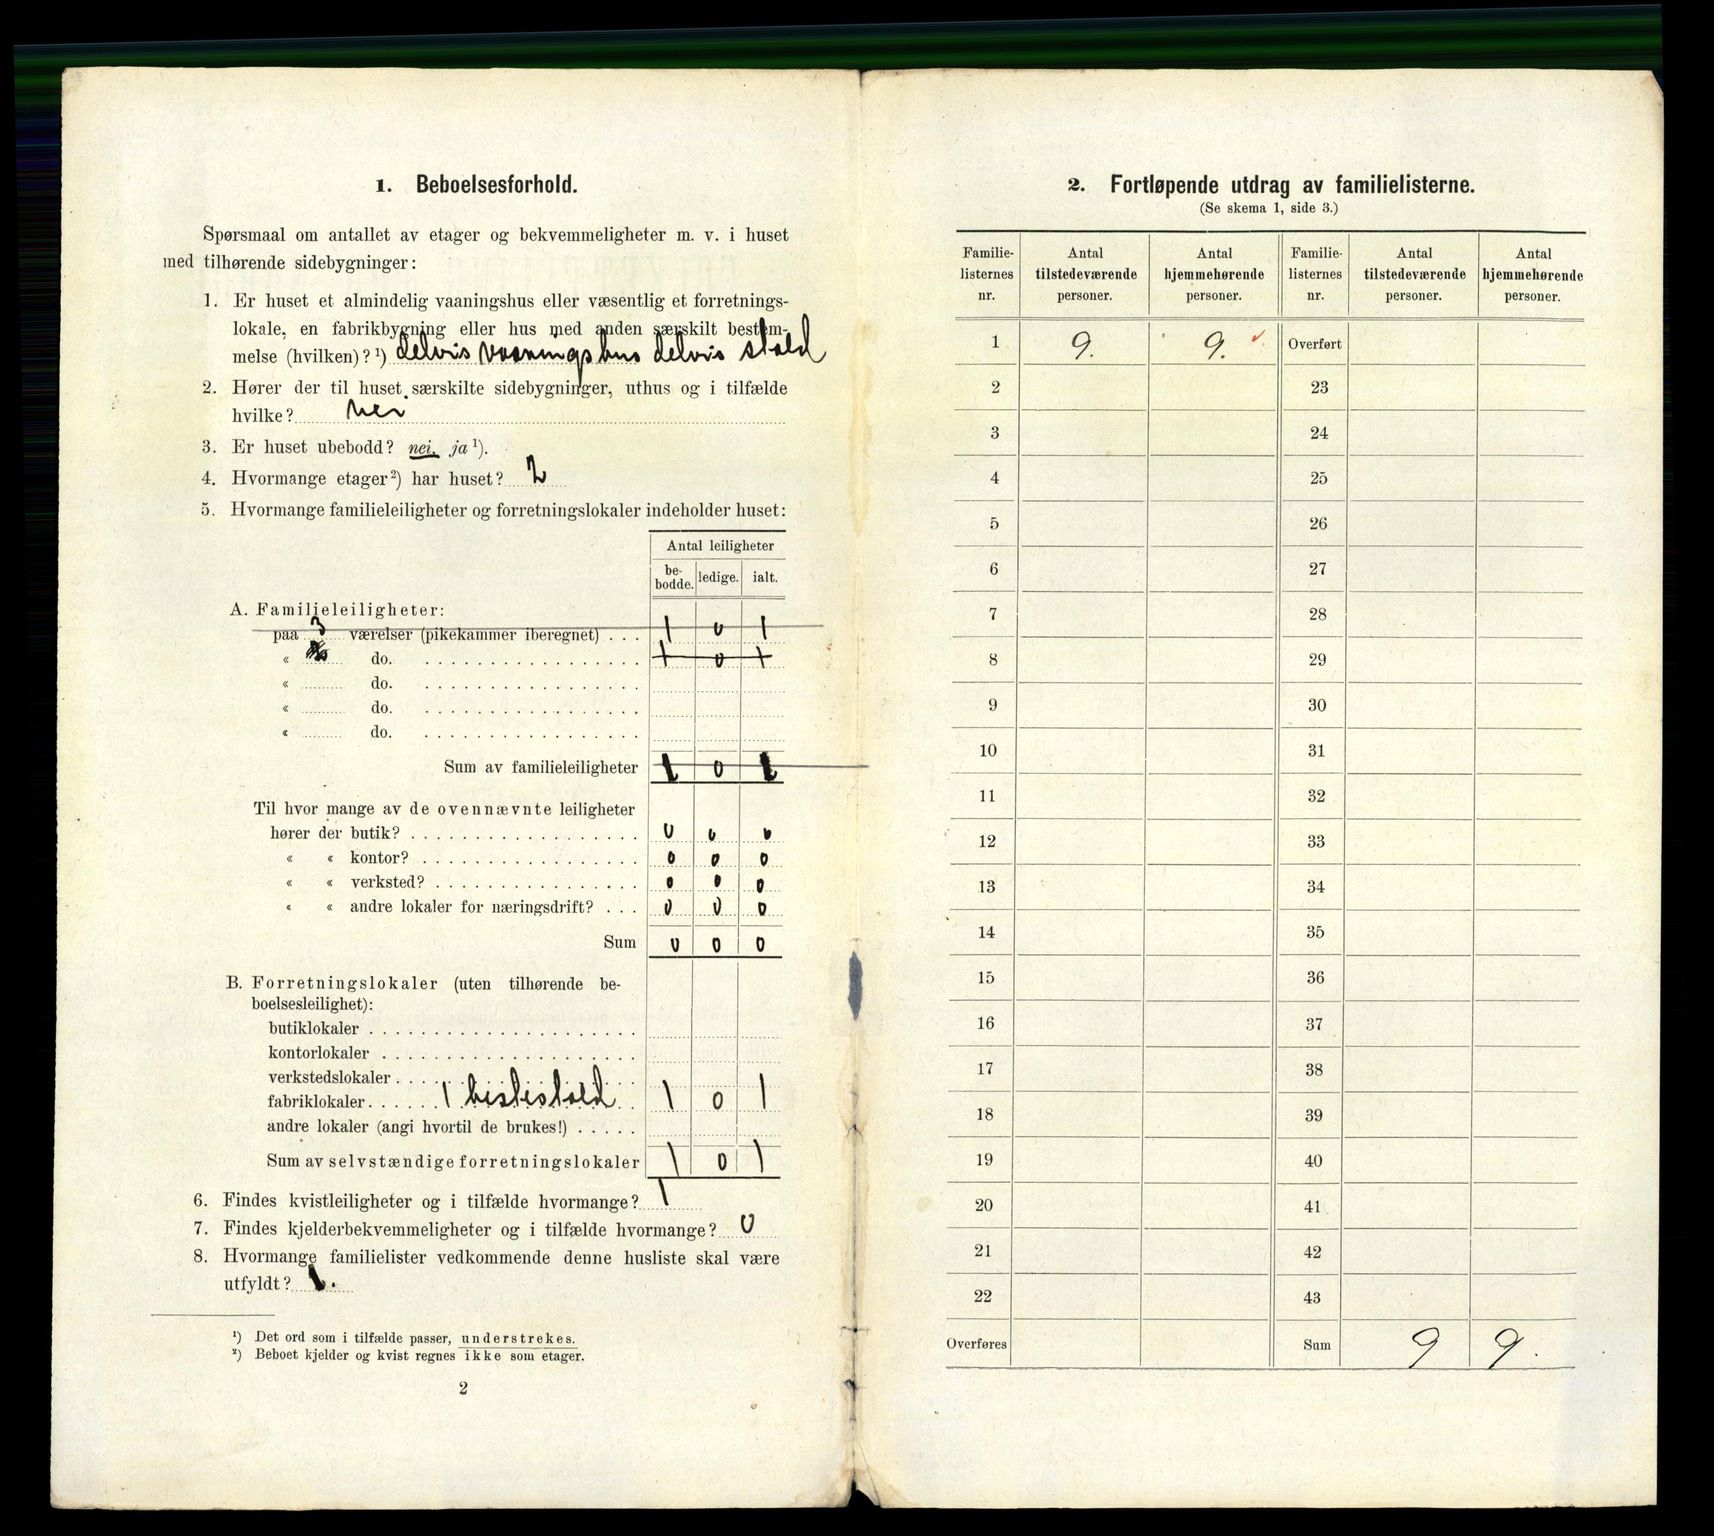 1. Beboelsesforhold.
Spørsmaal om antallet av etager og bekvemmeligheter m. v. i huset
med tilhørende sidebygninger:
1. Er huset et almindelig vaaningshus eller væsentlig et forretnings-
lokale, en fabrikbygning eller hus med anden særskilt bestem-
melse (hvilken)? ¹) delvis vaaningshus delvis stald
2. Hører der til huset særskilte sidebygninger, uthus og i tilfælde
hvilke? nei
3. Er huset ubebodd? nei, ja ¹).
4. Hvormange etager ²) har huset? 2
5. Hvormange familieleiligheter og forretningslokaler indeholder huset:
Antal leiligheter
be-bodde. ledige. ialt.
A. Familieleiligheter:
paa 3 værelser (pikekammer iberegnet) . . . 1 0 1
« do. . . . 1 0 1
« do. . . .
« do. . . .
« do. . . .
Sum av familieleiligheter 1 0 1
Til hvor mange av de ovennævnte leiligheter
hører der butik? . . . 0 0 0
« « kontor? . . . 0 0 0
« « verksted? . . . 0 0 0
« « andre lokaler for næringsdrift? . . . 0 0 0
Sum 0 0 0
B. Forretningslokaler (uten tilhørende be-
boelsesleilighet):
butiklokaler . . .
kontorlokaler . . .
verkstedslokaler . . .
fabriklokaler . . . 1 hestestald 1 0 1
andre lokaler (angi hvortil de brukes!) . . . . .
Sum av selvstændige forretningslokaler 1 0 1
6. Findes kvistleiligheter og i tilfælde hvormange? 1
7. Findes kjelderbekvemmeligheter og i tilfælde hvormange? 0
8. Hvormange familielister vedkommende denne husliste skal være
utfyldt? 1.
¹) Det ord som i tilfælde passer, understrekes.
²) Beboet kjelder og kvist regnes ikke som etager.
2
2. Fortløpende utdrag av familielisterne.
(Se skema 1, side 3.)
Familie-listernes nr. Antal tilstedeværende personer. Antal hjemmehørende personer. Familie-listernes nr. Antal tilstedeværende personer. Antal hjemmehørende personer.
1 9. 9. Overført
2 23
3 24
4 25
5 26
6 27
7 28
8 29
9 30
10 31
11 32
12 33
13 34
14 35
15 36
16 37
17 38
18 39
19 40
20 41
21 42
22 43
Overføres Sum 9 9.